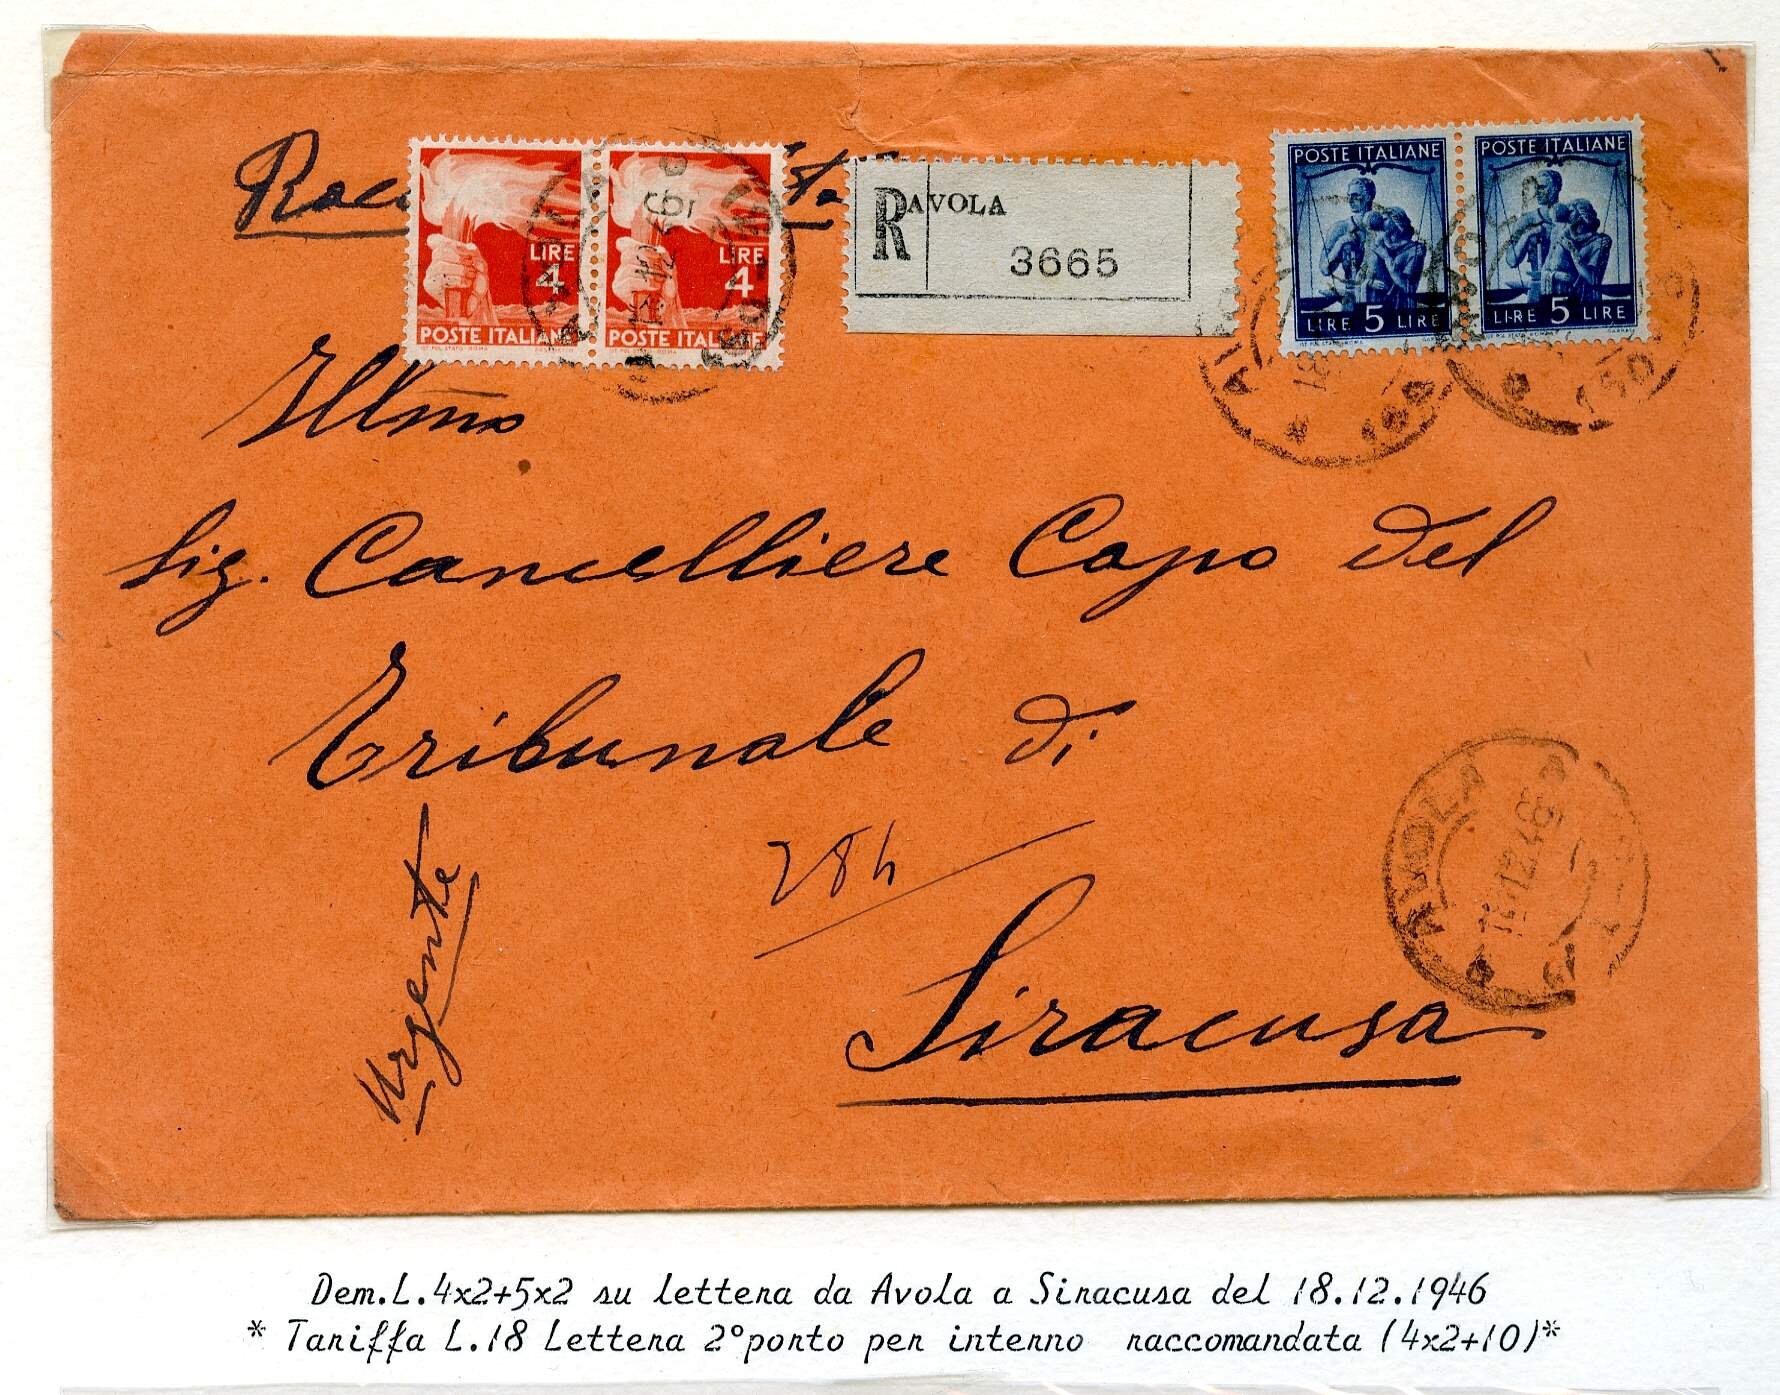 LIRE
4
POSTE ITALIANE
LIRE
4
POSTE ITALIANE
R AVOLA
3665
POSTE ITALIANE
LIRE 5 LIRE
POSTE ITALIANE
LIRE 5 LIRE
Illmo
Sig. Cancelliere Capo del
Tribunale di
Siracusa
Urgente
AVOLA
Dem.L.4x2+5x2 su lettera da Avola a Siracusa del 18.12.1946
* Tariffa L.18 Lettera 2°porto per interno raccomandata (4x2+10)*